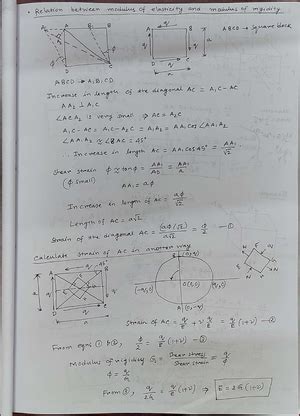 • Relation between modulus of elasticity and modulus of rigidity
A₁ A B₁ B
D C
a
q
φ
ABCD → square block
ABCD → A₁B₁CD
Increase in length of the diagonal AC = A₁C - AC
AA₂ ⊥ A₁C
∠ACA₂ is very small ⇒ AC = A₂C
A₁C - AC = A₁C - A₂C = A₁A₂ = AA₁ cos∠AA₁A₂
∠AA₁A₂ ≃ ∠BAC = 45°
∴ Increase in length AC = AA₁ cos45° = AA₁/√2
Shear strain φ ≃ tanφ = AA₁/AD = AA₁/a
(φ small)
AA₁ = aφ
Increase in length of AC = aφ/√2
Length of AC = a√2
Strain of the diagonal AC = (aφ/√2)/a√2 = φ/2 —①
Calculate strain of AC in another way
A q B
D q C
a
(0,q)
(-q,0) O(0,0) (q,0)
A(0,-q)
Strain of AC = q/E + ν q/E = q/E (1+ν) —②
From eqns. ① & ②, φ/2 = q/E (1+ν) —③
Modulus of rigidity G = Shear stress/Shear strain = q/φ
φ = q/G
From ③, q/2G = q/E (1+ν) ⇒ E = 2G (1+ν)